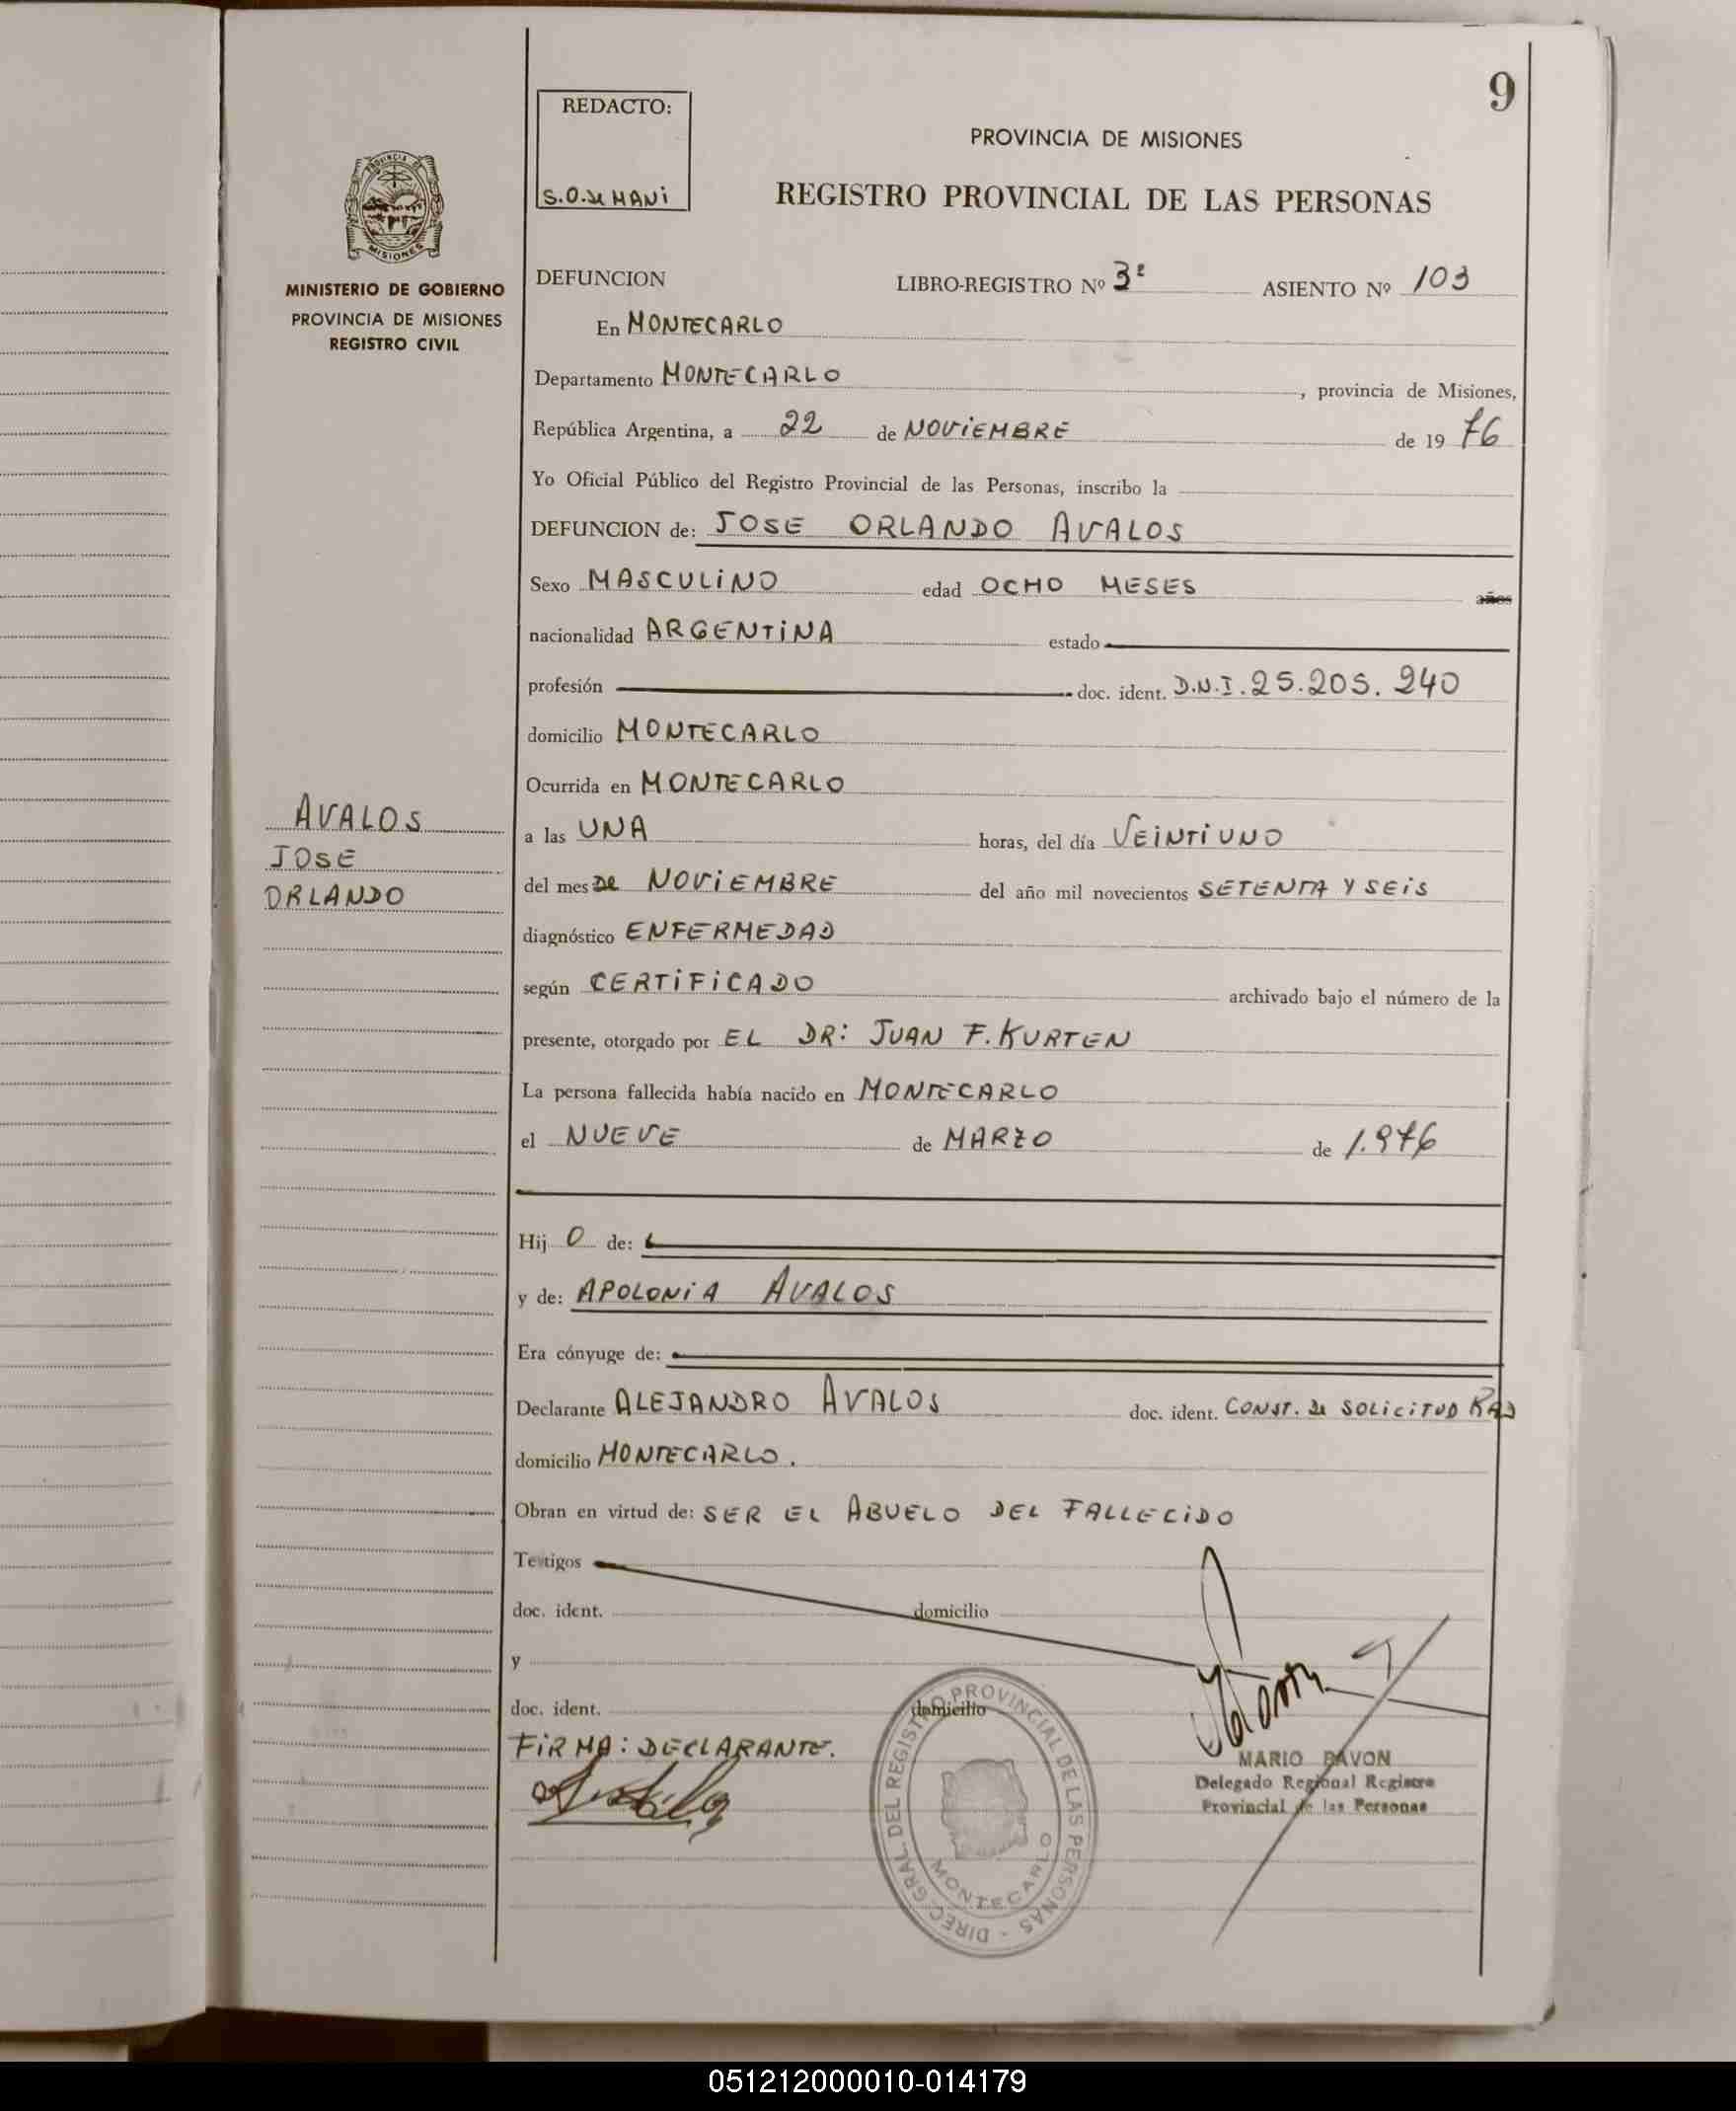 9
REDACTO:
S.O. de HANI
PROVINCIA DE MISIONES
REGISTRO PROVINCIAL DE LAS PERSONAS
PROVINCIA DE
MISIONES
MINISTERIO DE GOBIERNO
PROVINCIA DE MISIONES
REGISTRO CIVIL
AVALOS
JOSE
ORLANDO
DEFUNCION LIBRO-REGISTRO Nº 3º ASIENTO Nº 103
En MONTECARLO
Departamento MONTECARLO, provincia de Misiones,
República Argentina, a 22 de NOViEMBRE de 19 76
Yo Oficial Público del Registro Provincial de las Personas, inscribo la
DEFUNCION de: JOSE ORLANDO AVALOS
Sexo MASCULiNO edad OCHO MESES años
nacionalidad ARGENTiNA estado
profesión doc. ident. D.N.I. 25.205.240
domicilio MONTECARLO
Ocurrida en MONTECARLO
a las UNA horas, del día VEiNTiUNO
del mes de NOViEMBRE del año mil novecientos SETENTA Y SEiS
diagnóstico ENFERMEDAD
según CERTiFiCADO archivado bajo el número de la
presente, otorgado por EL DR: JUAN F. KURTEN
La persona fallecida había nacido en MONTECARLO
el NUEVE de MARZO de 1.976
Hij O de:
y de: APOLONiA AVALOS
Era cónyuge de:
Declarante ALEJANDRO AVALOS doc. ident. CONST. de SOLICiTUD
domicilio MONTECARLO.
Obran en virtud de: SER EL ABUELO DEL FALLECiDO
Testigos
doc. ident. domicilio
y
doc. ident. domicilio
FiRMA: DECLARANTE.
DIREC. GRAL. DEL REGISTRO PROVINCIAL DE LAS PERSONAS -
MONTECARLO
MARIO PAVON
Delegado Regional Registro
Provincial de las Personas
051212000010-014179